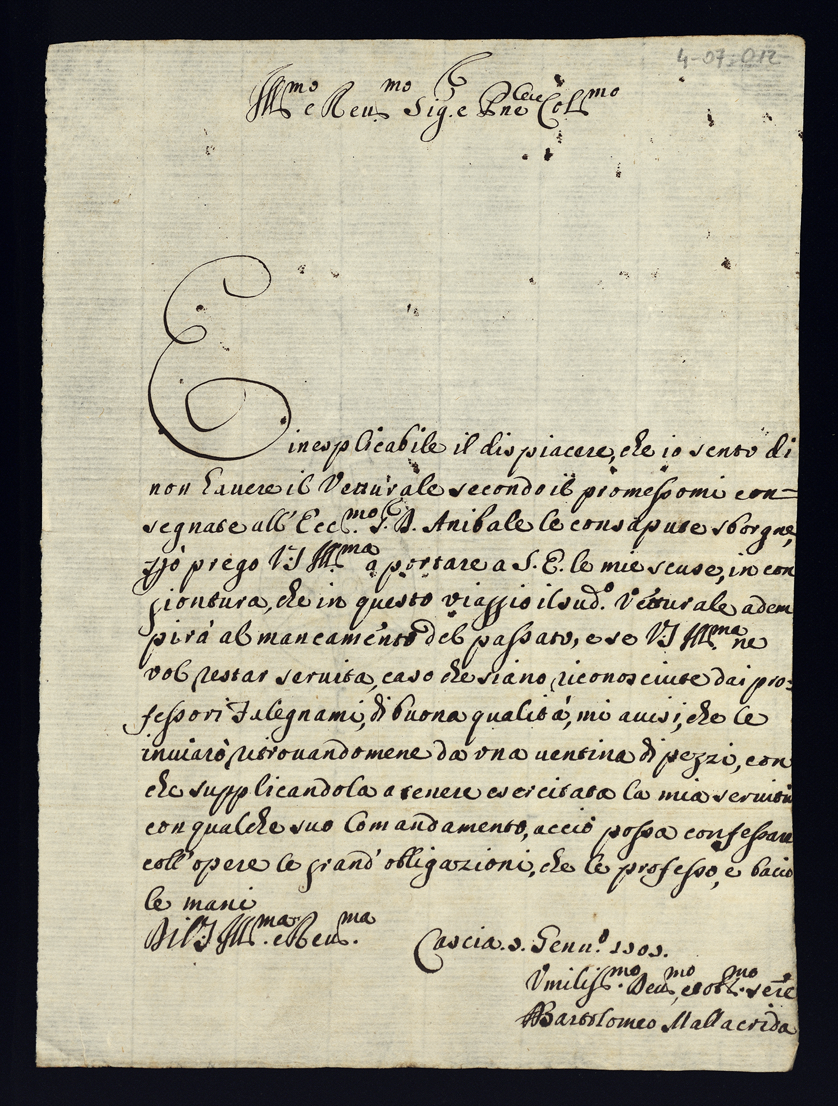 4-07-012
Ill.mo e Reu.mo Sig.e Pne Coll.mo
E inesplicabile il dispiacere, che io sento di
non hauere il Vetturale secondo il promessomi con=
segnate all'Ecc.mo S. D. Anibale le consapute sborgne,
prego V.S Ill.ma a portare a S. E. le mie scuse, in con
giontura, che in questo viaggio il sud.o Vetturale adem
pirà al mancamento del passato, e se VS Ill.ma ne
vol restar seruita, caso che siano riconosciute dai pro=
fessori Falegnami, di buona qualità, mi auisi, che le
inuiarò ritrouandomene da vna uentina di pezzi, con
che supplicandola a tenere esercitata la mia seruitù
con qualche suo Comandamento, acciò possa confessare
coll'opere le grand'obligazioni, che le professo, e bacio
le mani
Di V.S Ill.ma e Reu.ma
Cascia. Genn.o
Vmiliss.mo Deu.mo et obl.mo
Bartolomeo Mallacrida